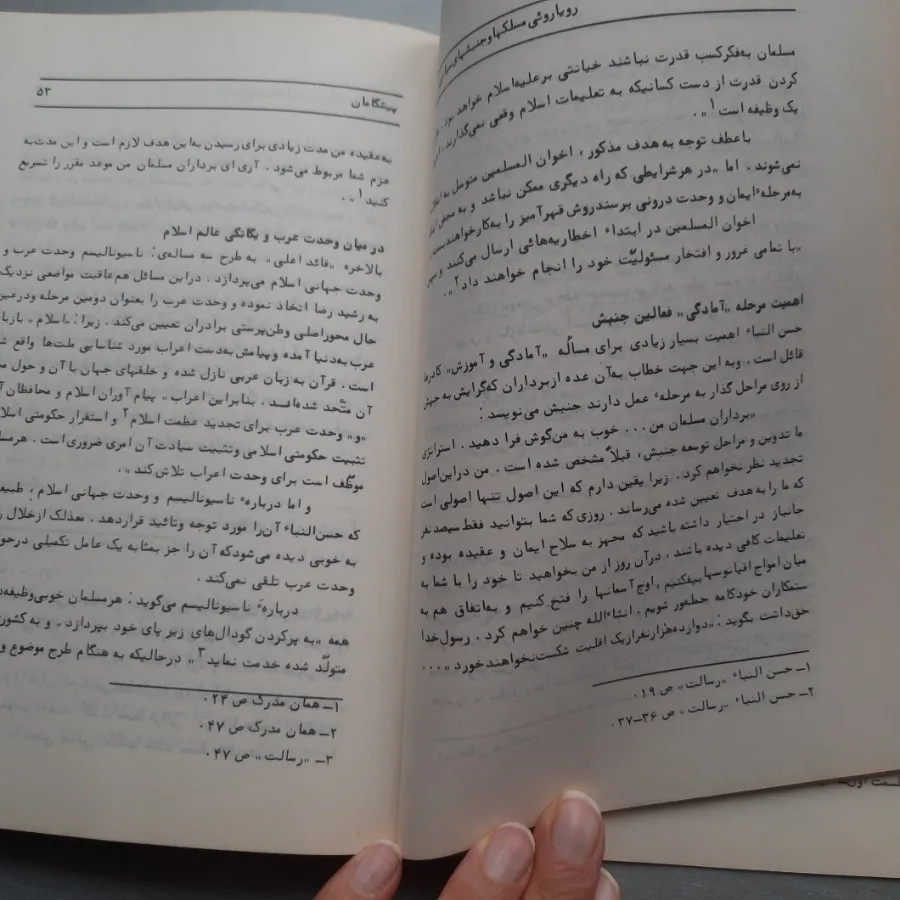 رویاروئی مسلکها و جنبشهای
مسلمان به‌فکرکسب قدرت نباشند خیانتی برعلیه‌اسلام خواهد بود
کردن قدرت از دست کسانیکه به تعلیمات اسلام وقعی نمی‌گذارند،
یک وظیفه است ۱".
باعطف توجه به هدف مذکور، اخوان المسلمین متوسل به
نمی‌شوند. اما "در هرشرایطی که راه دیگری ممکن نباشد و به محض
به‌مرحلهٔ ایمان و وحدت درونی برسندروش قهرآمیز را به‌کارخواهند
اخوان المسلمین در ابتداء اخطاریه‌هائی ارسال می‌کنند و
"با تمامی غرور و افتخار مسئولیّت خود را انجام خواهند داد۲".
اهمیت مرحله "آمادگی" فعالین جنبش
حسن النباء اهمیت بسیار زیادی برای مسألهٔ "آمادگی و آموزش" کادرها
قائل است. وبه این جهت خطاب به‌آن عده ازبرداران که‌گرایش به
از روی مراحل گذار به مرحلهٔ عمل دارند جنبش می‌نویسد:
"برداران مسلمان من... خوب به من‌گوش فرا دهید. استراتژی
ما تدوین و مراحل توسعه جنبش، قبلاً مشخص شده است. من دراین‌اصول
تجدید نظر نخواهم کرد. زیرا یقین دارم که این اصول تنها اصولی است
که ما را به هدف تعیین شده می‌رساند. روزی که شما بتوانید فقط سیصد نفر
جانباز در اختیار داشته باشید که مجهز به سلاح ایمان و عقیده بوده و
تعلیمات کافی دیده باشند، درآن روز از من بخواهید تا خود را با شما به
میان امواج اقیانوسها بیفکنیم، اوج آسمانها را فتح کنیم و به‌اتفاق هم به
ستکاران خودکامه حمله‌ور شویم. انشاءالله چنین خواهم کرد. رسول‌خدا
حق‌داشت بگوید: "دوازده‌هزارنفرازیک اقلیت شکست‌نخواهند خورد"...
۱- حسن النباء "رسالت" ص ۱۹.
۲- حسن النباء "رسالت" ص ۳۶-۳۷.
پیشگامان ۵۳
به‌عقیده من مدت زیادی برای رسیدن به‌این هدف لازم است و این مدت‌به
عزم شما مربوط می‌شود. آری ای برداران مسلمان من موعد مقرر را تسریع
کنید ۱".
در میان وحدت عرب و یگانگی عالم اسلام
بالاخره "قائد اعلی" به طرح سه مساله‌ی: ناسیونالیسم وحدت عرب و
وحدت جهانی اسلام می‌پردازد. دراین مسائل هم‌عاقبت مواضعی نزدیک
به رشید رضا اتخاذ نموده و وحدت عرب را بعنوان دومین مرحله ودرعین
حال محوراصلی وطن‌پرستی برادران تعیین می‌کند. زیرا: "اسلام" بازبان
عرب به‌دنیا آمده وپیامش به‌دست اعراب مورد شناسایی ملت‌ها واقع شده
است. قرآن به زبان عربی نازل شده و خلقهای جهان با آن و حول
آن متّحد شده‌اند. بنابراین اعراب" پیام آوران اسلام و محافظان
"و" وحدت عرب برای تجدید عظمت اسلام۲ و استقرار حکومتی
تثبیت حکومتی اسلامی وتثبیت سیادت آن امری ضروری‌است.
موظّف است برای وحدت اعراب تلاش‌کند".
و اما دربارهٔ ناسیونالیسم و وحدت جهانی اسلام،
که حسن‌النباء آن‌را مورد توجه وتائید قراردهد. معذلک ازخلال
به خوبی دیده می‌شودکه‌آن را جز بمثابه یک عامل تکمیلی
وحدت عرب تلقی نمی‌کند.
دربارهٔ ناسیونالیسم می‌گوید: هرمسلمان خوبی‌وظیفه
همه "به پرکردن گودال‌های زیر پای خود بپردازد" و به
متولّد شده خدمت نماید۳" درحالیکه به هنگام طرح موضوع و
۱- همان مدرک ص ۲۴.
۲- همان مدرک ص ۴۷.
۳- "رسالت" ص ۴۷.